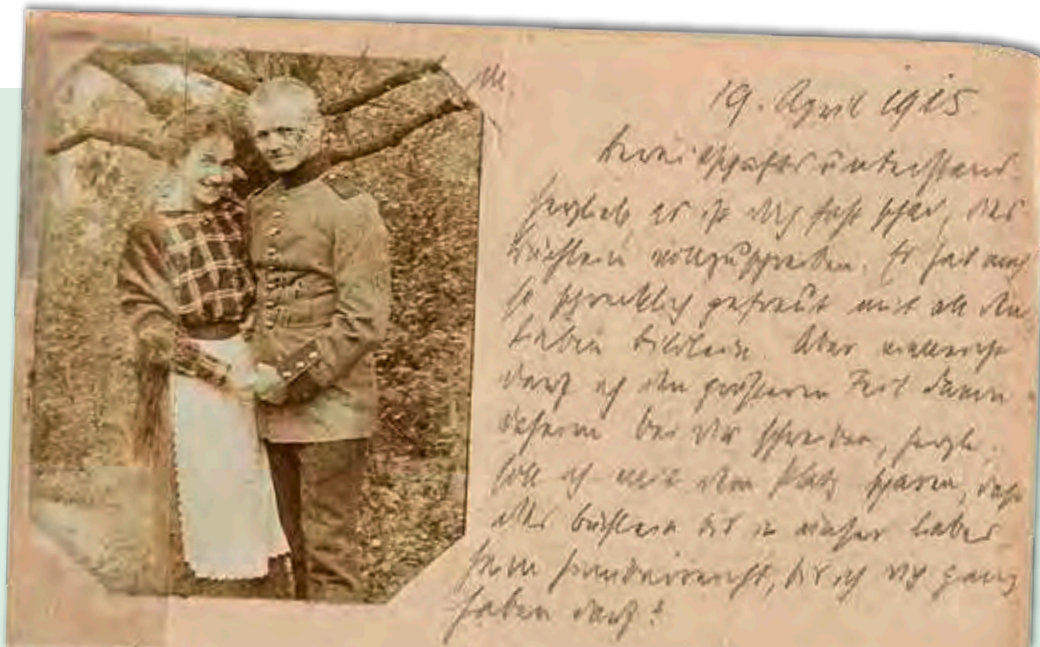 19. April 1915
Bereitschaftsunterstand.
Herzlieb, es ist doch fast schad, das
Büchlein vollzuschreiben. Es hat mich
so schrecklich gefreut mit all den
lieben Bildlein. Aber vielleicht
darf ich den größeren Teil darin
daheim bei dir schreiben, Herzle,
soll ich mit dem Platz sparen, dass
das Büchlein bis in
bis ich dich ganz
haben darf!